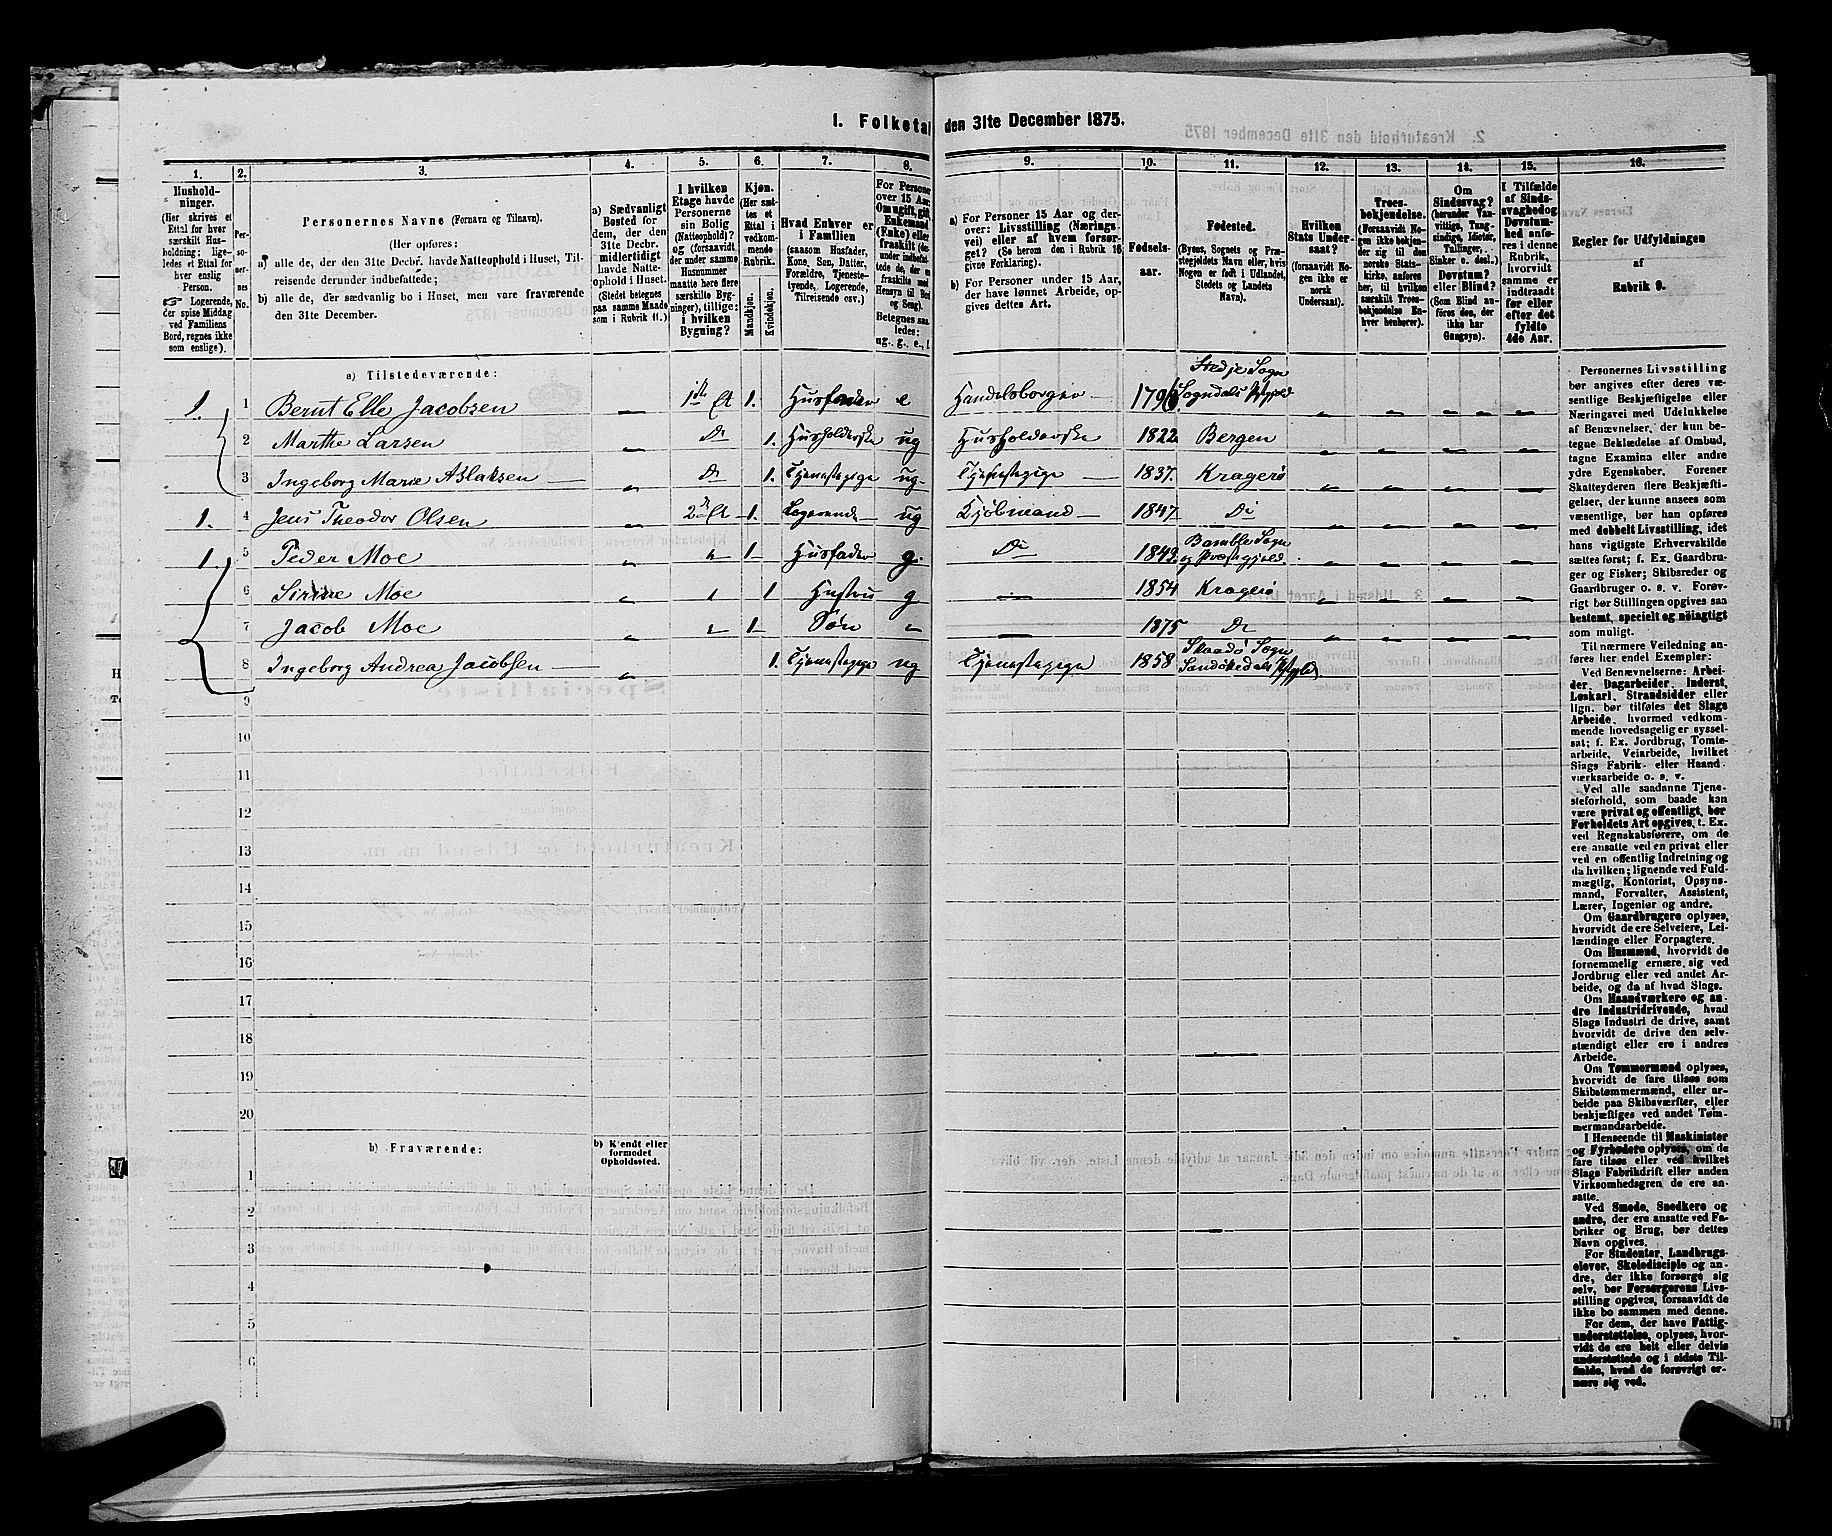 I. Folketal den 31te December 1875.
1. 2. 3. 4. 5. 6. 7. 8. 9. 10. 11. 12. 13. 14. 15. 16.
Hushold-
ninger.
(Her skrives et
Ettal for hver
særskilt Hus-
holdning; lige-
ledes et Ettal for
hver enslig
Person.
☞ Logerende,
der spise Middag
ved Familiens
Bord, regnes ikke
som enslige).
Per-
so-
ner-
nes
No.
Personernes Navne (Fornavn og Tilnavn).
(Her opføres:
a) alle de, der den 31te Decbr. havde Natteophold i Huset, Til-
reisende derunder indbefattede;
b) alle de, der sædvanlig bo i Huset, men vare fraværende
den 31te December.
a) Sædvanligt
Bosted for
dem, der den
31te Decbr.
midlertidigt
havde Natte-
ophold i Huset.
(Stedet betegnes
paa samme Maade
som i Rubrik 11.)
I hvilken
Etage havde
Personerne
sin Bolig
(Natteophold)?
og (forsaavidt
der under samme
Husnummer
maatte høre flere
særskilte Byg-
ninger), tillige:
i hvilken
Bygning?
Kjøn.
(Her sæt-
tes et
Ettal i
vedkom-
mende
Rubrik.
Mandkjøn.
Kvindekjøn.
Hvad Enhver er
i Familien
(saasom Husfader,
Kone, Søn, Datter,
Forældre, Tjeneste-
tyende, Logerende,
Tilreisende osv.)
For Personer
over 15 Aar:
Om ugift, gift,
Enkemand
(Enke) eller
fraskilt (der-
under indbefat-
tede de, der ere
fraskilte med
Hensyn til Bord
og Seng).
Betegnes saa-
ledes:
ug., g., e., f.
a) For Personer 15 Aar og der-
over: Livsstilling (Nærings-
vei) eller af hvem forsør-
get? (Se herom den i Rubrik 16
givne Forklaring).
b) For Personer under 15 Aar,
der have lønnet Arbeide, op-
gives dettes Art.
Fødsels-
aar.
Fødested.
(Byens, Sognets og Præ-
stegjeldets Navn eller, hvis
Nogen er født i Udlandet,
Stedets og Landets
Navn).
Hvilken
Stats Under-
saat?
(forsaavidt No-
gen ikke er
norsk
Undersaat).
Troes-
bekjendelse.
(Forsaavidt No-
gen ikke bekjen-
der sig til den
norske Stats-
kirke, anføres
her, til hvilken
særskilt Troes-
bekjendelse En-
hver henhører).
Om
Sindssvag?
(herunder Van-
vittige, Tung-
sindige, Idioter,
Tullinger,
Sinker o. desl.)
Døvstum?
eller Blind?
(Som Blind an-
føres den, der
ikke har
Gangsyn).
I Tilfælde
af Sinds-
svaghed og
Døvstum-
hed anfø-
res i denne
Rubrik,
hvorvidt
samme er
indtraadt
før eller
efter det
fyldte
4de Aar.
Regler for Udfyldningen
af
Rubrik 9.
a) Tilstedeværende:
1. 1 Bernt Elle Jacobsen 1ste Et 1. Husfader e Handelsborger 1796 Stedje Sogn Sogndals Pgjeld
2 Marthe Larsen Do 1. Husholderske ug Husholderske 1822 Bergen
3 Ingeborg Marie Aslaksen Do 1. Tjenestepige ug Tjenestepige 1837. Kragerø
1. 4 Jens Theodor Olsen 2 Et 1. Logerende ug Kjøbmand 1847 Do
1. 5 Peder Moe " 1 Husfader g. Do 1843 Bamble Sogn og Præstegjeld
6 Sirine Moe " 1 Hustru g 1854 Kragerø
7 Jacob Moe " 1 Søn 1875 Do
8 Ingeborg Andrea Jacobsen 1. Tjenestepige ug Tjenestepige 1858 Skaadø Sogn Sandøkedals Pgjeld
9
10
11
12
13
14
15
16
17
18
19
20
b) Fraværende:
b) Kjendt eller
formodet
Opholdssted.
1
2
3
4
5
6
Personernes Livsstilling
bør angives efter deres væ-
sentlige Beskjæftigelse eller
Næringsvei med Udelukkelse
af Benævnelser, der kun be-
tegne Beklædelse af Ombud,
tagne Examina eller andre
ydre Egenskaber. Forener
Skatteyderen flere Beskjæfti-
gelser, der kunne ansees som
væsentlige, bør han opføres
med dobbelt Livsstilling, idet
hans vigtigste Erhvervskilde
sættes først; f. Ex. Gaardbru-
ger og Fisker; Skibsreder og
Gaardbruger o. s. v. Forøv-
rigt bør Stillingen opgives saa
bestemt, specielt og nøiagtigt
som muligt.
Til nærmere Veiledning an-
føres her endel Exempler:
Ved Benævnelserne: Arbei-
der, Dagarbeider, Inderst,
Løskarl, Strandsidder eller
lign. bør tilføies det Slags
Arbeide, hvormed vedkom-
mende hovedsagelig er syssel-
sat; f. Ex. Jordbrug, Tomte-
arbeide, Veiarbeide, hvilket
Slags Fabrik- eller Haand-
værksarbeide o. s. v.
Ved alle saadanne Tjene-
steforhold, som baade kan
være privat og offentligt, bør
Forholdets Art opgives, t. Ex.
ved Regnskabsførere, om de
ere ansatte ved en privat eller
ved en offentlig Indretning og
da hvilken; lignende ved Fuld-
mægtig, Kontorist, Opsyns-
mand, Forvalter, Assistent,
Lærer, Ingeniør og andre.
Om Gaardbrugere oplyses,
hvorvidt de ere Selveiere, Lei-
lændinge eller Forpagtere.
Om Husmænd, hvorvidt de
fornemmelig ernære sig ved
Jordbrug eller ved andet Ar-
beide, og da af hvad Slags.
Om Haandværkere og an-
dre Industridrivende, hvad
Slags Industri de drive, samt
hvorvidt de drive den selv-
stændigt eller ere i andres
Arbeide.
Om Tømmermænd oplyses,
hvorvidt de fare tilsøs som
Skibstømmermænd, eller ar-
beide paa Skibsværfter, eller
beskjæftiges ved andet Tøm-
mermandsarbeide.
I Henseende til Maskinister
og Fyrbødere oplyses, om de
fare tilsøs eller ved hvilket
Slags Fabrikdrift eller anden
Virksomhedsgren de ere an-
satte.
Ved Smede, Snedkere og
andre, der ere ansatte ved Fa-
briker og Brug, bør dettes
Navn opgives.
For Studenter, Landbrugs-
elever, Skoledisciple og an-
dre, der ikke forsørge sig
selv, bør Forsørgerens Livs-
stilling opgives, forsaavidt de
ikke bo sammen med denne.
For dem, der have Fattig-
understøttelse, oplyses, hvor-
vidt de ere helt eller delvis
understøttede og i sidste Til-
fælde, hvad de forøvrigt er-
nære sig ved.